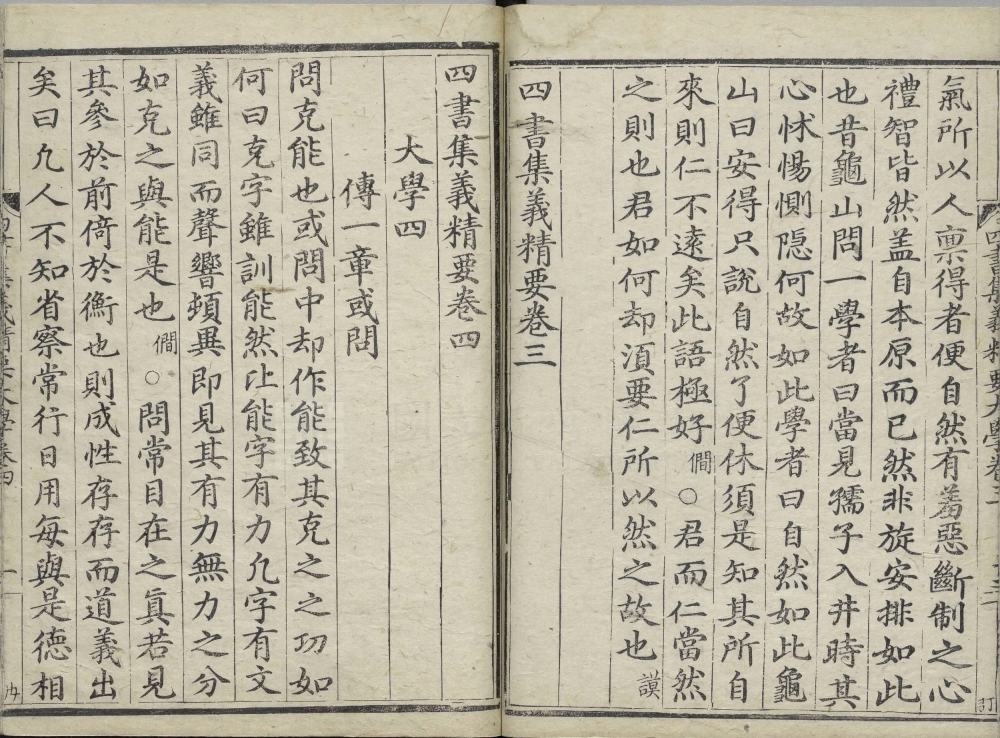 氣所以人禀得者便自然有羞惡斷制之心
禮智皆然盖自本原而已然非旋安排如此
也昔龜山問一學者曰當見孺子入井時其
心怵惕惻隠何故如此學者曰自然如此龜
山曰安得只說自然了便休須是知其所自
來則仁不逺矣此語極好僩○君而仁當然
之則也君如何却湏要仁所以然之故也謨
四書集義精要卷三
四書集義精要卷四
大學四
傳一章或問
問克能也或問中却作能致其克之之功如
何曰克字雖訓能然比能字有力凢字有文
義雖同而聲響頓異即見其有力無力之分
如克之與能是也僩○問常目在之眞若見
其參於前倚於衡也則成性存存而道義出
矣曰凢人不知省察常行日用每與是德相